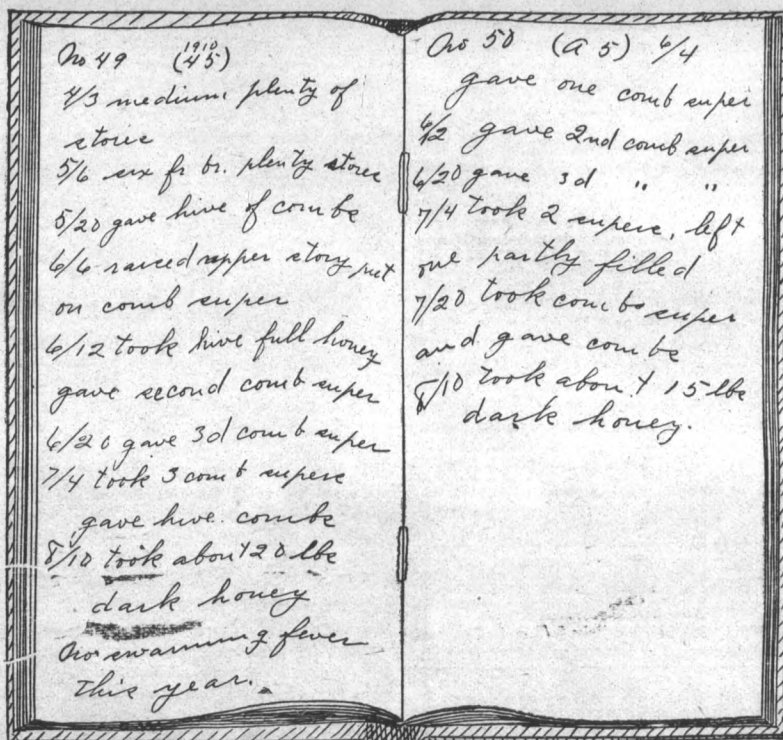 No 49 (1910 45)
4/3 medium plenty of
stores
5/6 six fr br. plenty stores
5/20 gave hive of combs
6/6 raised upper story put
on comb super
6/12 took hive full honey
gave second comb super
6/20 gave 3d comb super
7/4 took 3 comb supers
gave hive combs
8/10 took about 20 lbs
dark honey
No swarming fever
this year.
No 50 (A 5) 6/4
gave one comb super
6/12 gave 2nd comb super
6/20 gave 3d " "
7/4 took 2 supers, left
one partly filled
7/20 took combs super
and gave combs
8/10 took about 15 lbs
dark honey.